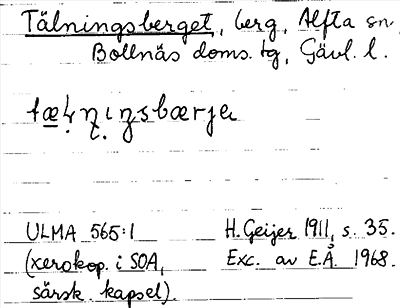 Tälningsberget, berg, Alfta sn
Bollnäs doms. tg, Gävl. l.
tæḷṇıŋsbærje
ULMA 565:1 H. Geijer 1911, s. 35.
(xerokop. i SOA, Exc. av E.Å. 1968.
särsk. kapsel).